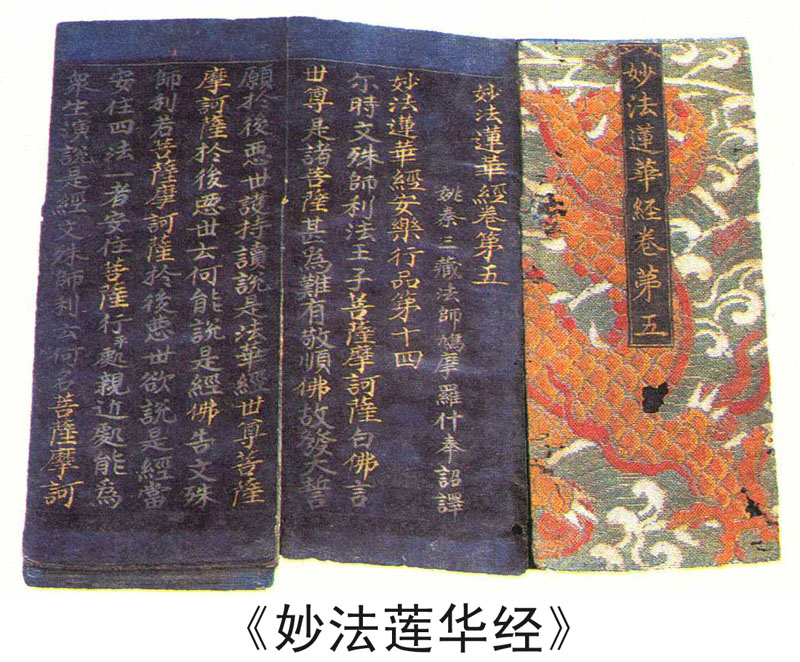 妙法蓮華經卷第五
妙法蓮華經卷第五
姚秦三藏法師鳩摩羅什奉詔譯
妙法蓮華經安樂行品第十四
尓時文殊師利法王子菩薩摩訶薩白佛言
世尊是諸菩薩甚為難有敬順佛故發大誓
願於後惡世護持讀說是法華經世尊菩薩
摩訶薩於後惡世云何能說是經佛告文殊
師利若菩薩摩訶薩於後惡世欲說是經當
安住四法一者安住菩薩行处親近處能為
衆生演說是經文殊師利云何名菩薩摩訶
《妙法莲华经》